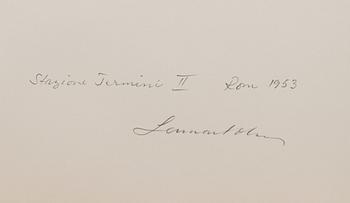 Stazione Termini II Rom 1953
Lennart Olson